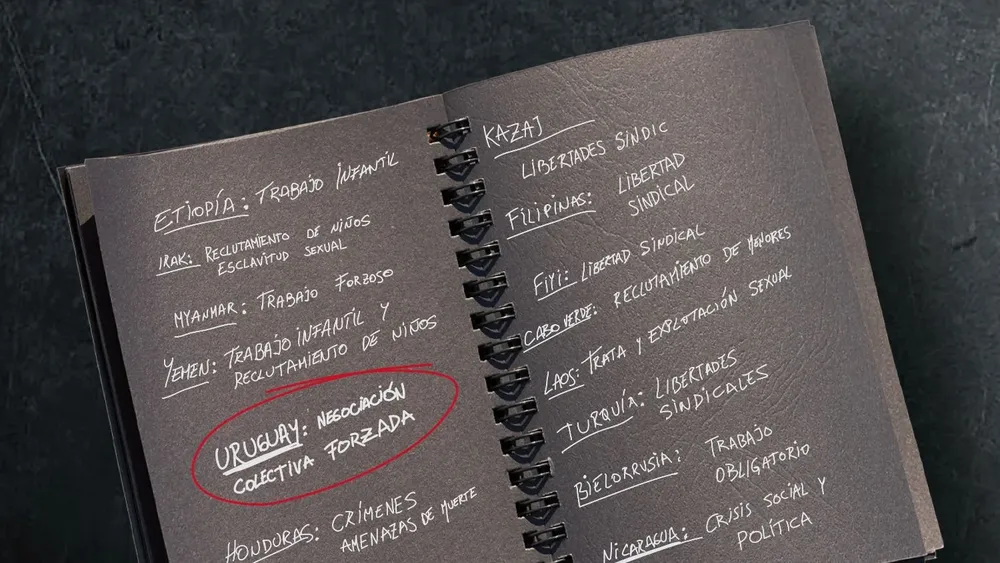 ETIOPÍA: TRABAJO INFANTIL
IRAK: RECLUTAMIENTO DE NIÑOS
ESCLAVITUD SEXUAL
MYANMAR: TRABAJO FORZOSO
YEMEN: TRABAJO INFANTIL Y
RECLUTAMIENTO DE NIÑOS
URUGUAY: NEGOCIACIÓN
COLECTIVA FORZADA
HONDURAS: CRÍMENES
AMENAZAS DE MUERTE
KAZAJ
LIBERTADES SINDIC
FILIPINAS: LIBERTAD
SINDICAL
FIYI: LIBERTAD SINDICAL
CABO VERDE: RECLUTAMIENTO DE MENORES
LAOS: TRATA Y EXPLOTACIÓN SEXUAL
TURQUÍA: LIBERTADES
SINDICALES
BIELORRUSIA: TRABAJO
OBLIGATORIO
NICARAGUA: CRISIS SOCIAL Y
POLÍTICA